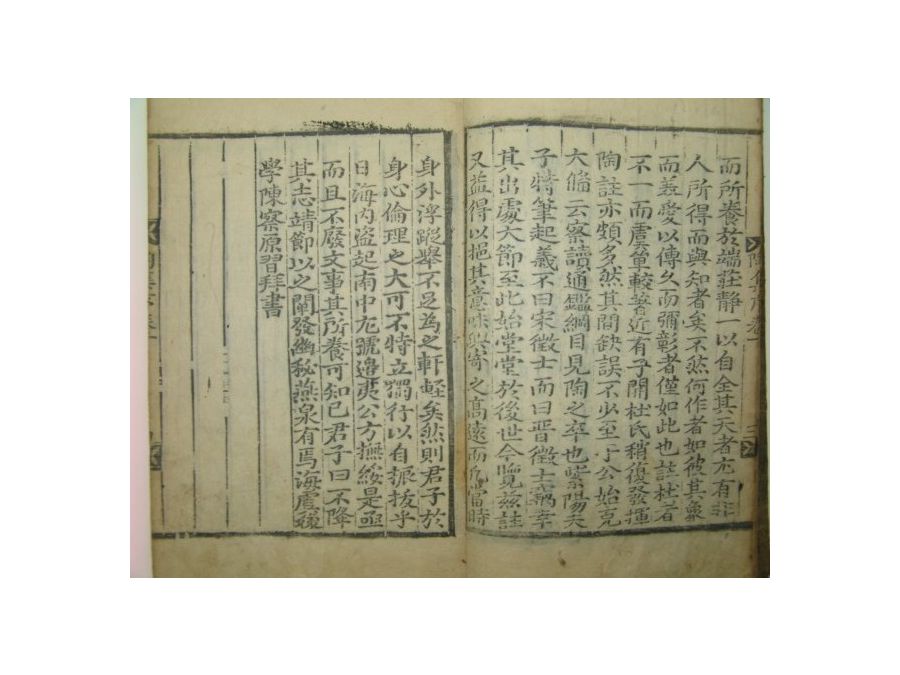 而所養於端莊静一以自全其天者尤有非
人所得而與知者矣不然何作者如彼其衆
而義愛以傳久而彌彰者僅如此也註杜者
不一而虞箋較著近有子開杜氏稍復發揮
陶註亦頗多然其間缺誤不少至于公始克
大備云察讀通鑑綱目見陶之卒也紫陽夫
子特筆起義不曰宋徵士而曰晋徵士竊幸
其出處大節至此始堂堂於後世今覽兹註
又益得以挹其意味與寄之髙遠而凡當時
身外浮蹤舉不足為之軒輊矣然則君子於
身心倫理之大可不特立獨行以自振拔乎
日海内盗起南中尤號邊㐲公方撫綏是亟
而且不廢文事其所養可知已君子曰不降
其志靖節以之闡發幽秘燕泉有焉海虞後
學陳察原習拜書
陶集序卷一